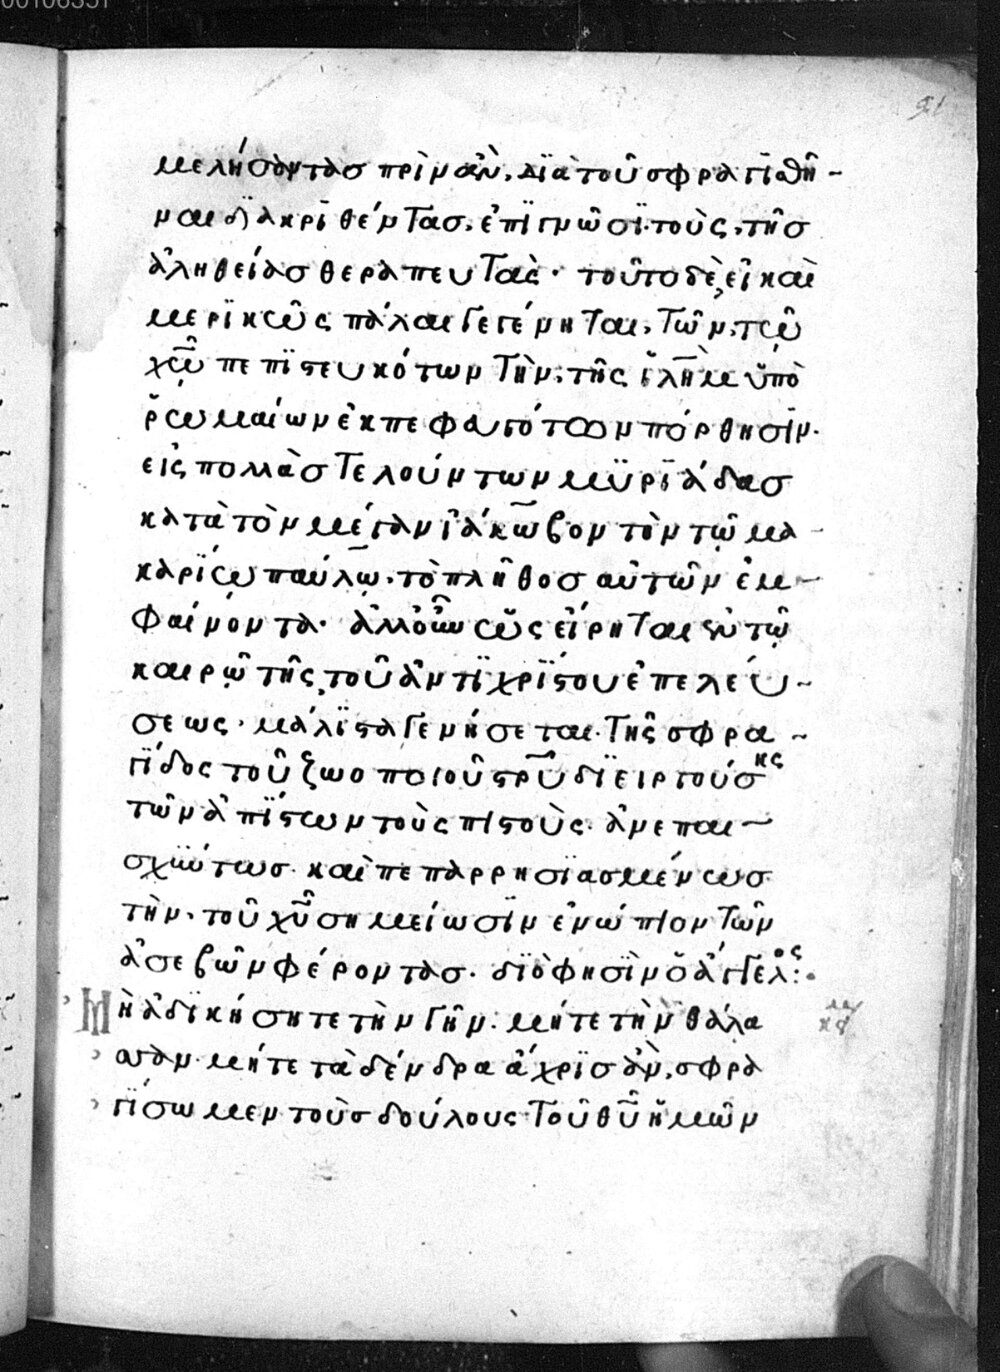 00106331
91
μελήσοντας πρὶν ἂν, διὰ τοῦ σφραγϊσθῆ-
ναι δϊακρϊθέντασ, ἐπϊγνῶσϊ τοὺς, τῆσ
ἀληθείασ θεραπευτὰς· τοῦτο δὲ, εἰ καὶ
μερϊκῶς πάλαι γεγένηται, τῶν, τῷ
χῷ πεπϊστευκότων τὴν, τῆς ἱλὴμ ὑπὸ
ῥωμαίων ἐκπεφευγότων πόρθησϊν·
εἰς πολλὰσ τελούντων μϋρϊάδασ
κατὰ τὸν μέγαν ἰάκωβον τὸν τῷ μα-
καρίῳ παύλῳ, τὸ πλῆθοσ αὐτῶν ἐμ-
φαίνοντα· ἀλλοὖν ὡς εἴρηται ἐν τῷ
καιρῷ τῆς, τοῦ ἀντϊχρίστου ἐπελεύ-
σεως· μάλϊστα γενήσεται· τῆς σφρα-
γϊδος τοῦ ζωοποιοῦ στροῦ δϊειργούσης
τῶν ἀπίστων τοὺς πιστοὺς· ἀνεπαι-
σχύντωσ· καὶ πεπαρρησϊασμένωσ
τὴν, τοῦ χῦ σημείωσϊν ἐνώπιον τῶν
ἀσεβῶν φέροντασ· δϊὸ φησὶν ὁ ἄγγελος:·
Μὴ ἀδϊκήσητε τὴν γῆν· μήτε τὴν θάλα
σσαν· μήτε τὰ δένδρα ἄχρϊσ ἂν, σφρα
γίσωμεν τοὺσ δούλους τοῦ θῦ ἡμῶν